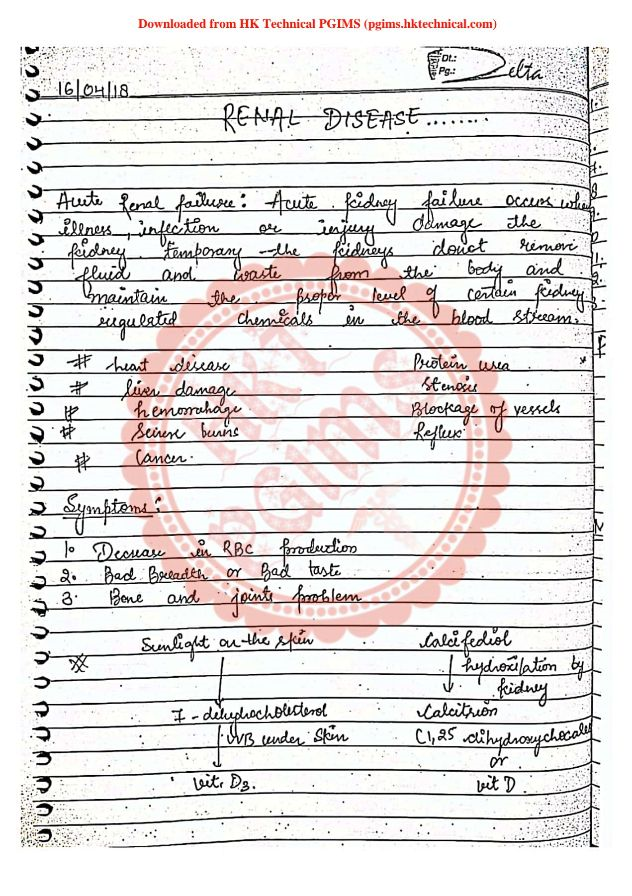 Downloaded from HK Technical PGIMS (pgims.hktechnical.com)
Dt.:
Pg.: Delta
16/04/18
RENAL DISEASE........
Acute Renal failure: Acute kidney failure occurs when
illness, infection or injury damage the
kidney. Temporary the kidneys donot remove
fluid and waste from the body and
maintain the proper level of certain kidney
regulated chemicals in the blood stream.
# heart disease Protein urea
# liver damage Stenosis
# hemorrahage Blockage of vessels
# Seirese burns Reflux
# Cancer.
HKT
pgims
Symptoms:
1. Decrease in RBC production
2. Bad Breadth or Bad taste
3. Bone and joints problem
Sunlight on the skin Calcifediol
hydroxilation by
kidney
7 - dehydrocholesterol Calcitrion
UVB under Skin C1,25 dihydroxychocale
or
vit. D3. vit D